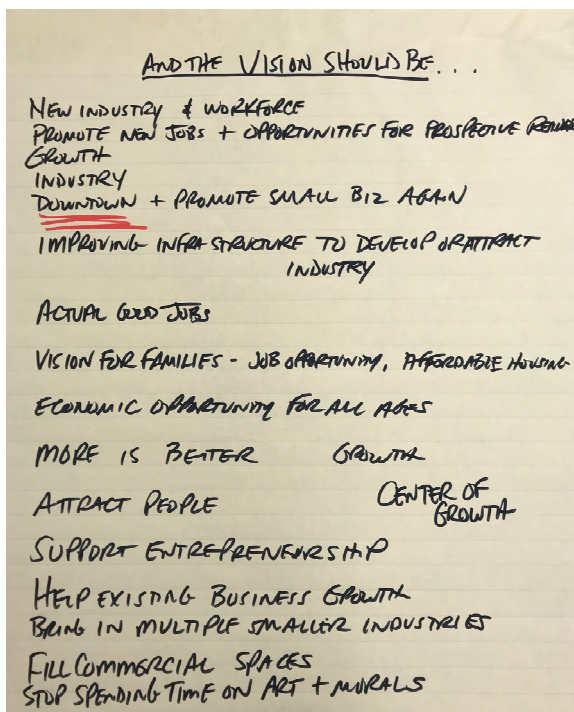 AND THE VISION SHOULD BE...
NEW INDUSTRY & WORKFORCE
PROMOTE NEW JOBS + OPPORTUNITIES FOR PROSPECTIVE
GROWTH
INDUSTRY
DOWNTOWN + PROMOTE SMALL BIZ AGAIN
IMPROVING INFRASTRUCTURE TO DEVELOP OR ATTRACT
INDUSTRY
ACTUAL GOOD JOBS
VISION FOR FAMILIES - JOB OPPORTUNITY, AFFORDABLE HOUSING
ECONOMIC OPPORTUNITY FOR ALL AGES
MORE IS BETTER GROWTH
ATTRACT PEOPLE CENTER OF
GROWTH
SUPPORT ENTREPRENEURSHIP
HELP EXISTING BUSINESS GROWTH
BRING IN MULTIPLE SMALLER INDUSTRIES
FILL COMMERCIAL SPACES
STOP SPENDING TIME ON ART + MURALS